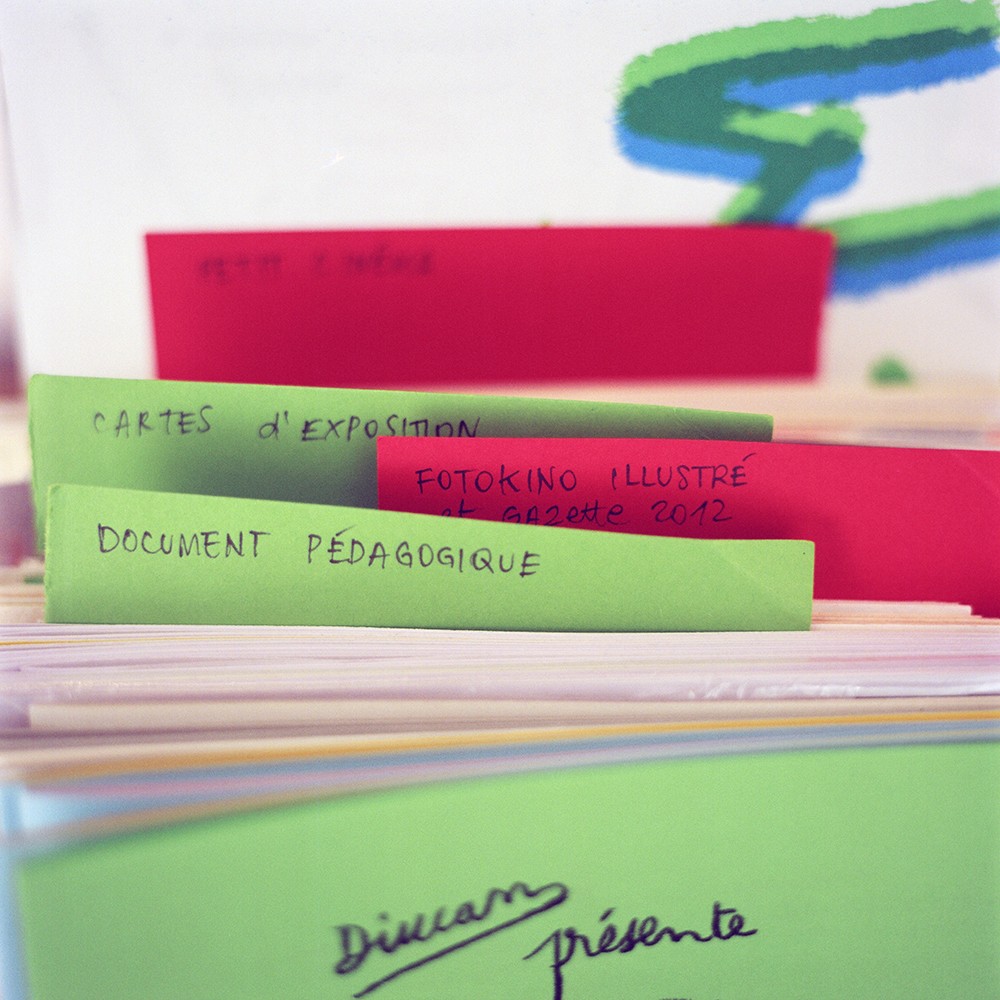 PETIT CINÉMA
CARTES d'EXPOSITION
FOTOKINO ILLUSTRÉ
et GAZette 2012
DOCUMENT PÉDAGOGIQUE
présente